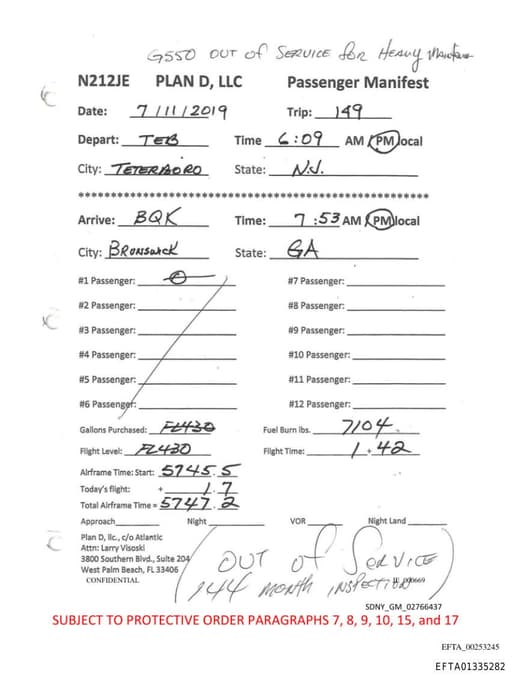 G550 OUT OF SERVICE for HEAVY
N212JE PLAN D, LLC Passenger Manifest
Date: 7/11/2019 Trip: 149
Depart: TEB Time 6:09 AM PM local
City: TETERBORO State: N.J.
************************************************************
Arrive: BQK Time: 7:53 AM PM local
City: BRONSWICK State: GA
#1 Passenger: 0 #7 Passenger:
#2 Passenger: #8 Passenger:
#3 Passenger: #9 Passenger:
#4 Passenger: #10 Passenger:
#5 Passenger: #11 Passenger:
#6 Passenger: #12 Passenger:
Gallons Purchased: FL430 Fuel Burn lbs. 7104
Flight Level: FL430 Flight Time: 1+42
Airframe Time: Start: 5745.5
Today's flight: + 1.7
Total Airframe Time = 5747.2
Approach Night VOR Night Land
Plan D, llc., c/o Atlantic
Attn: Larry Visoski
3800 Southern Blvd., Suite 204
West Palm Beach, FL 33406
CONFIDENTIAL
OUT OF SERVICE
144 MONTH INSPECTION
SDNY_GM_02766437
SUBJECT TO PROTECTIVE ORDER PARAGRAPHS 7, 8, 9, 10, 15, and 17
EFTA_00253245
EFTA01335282